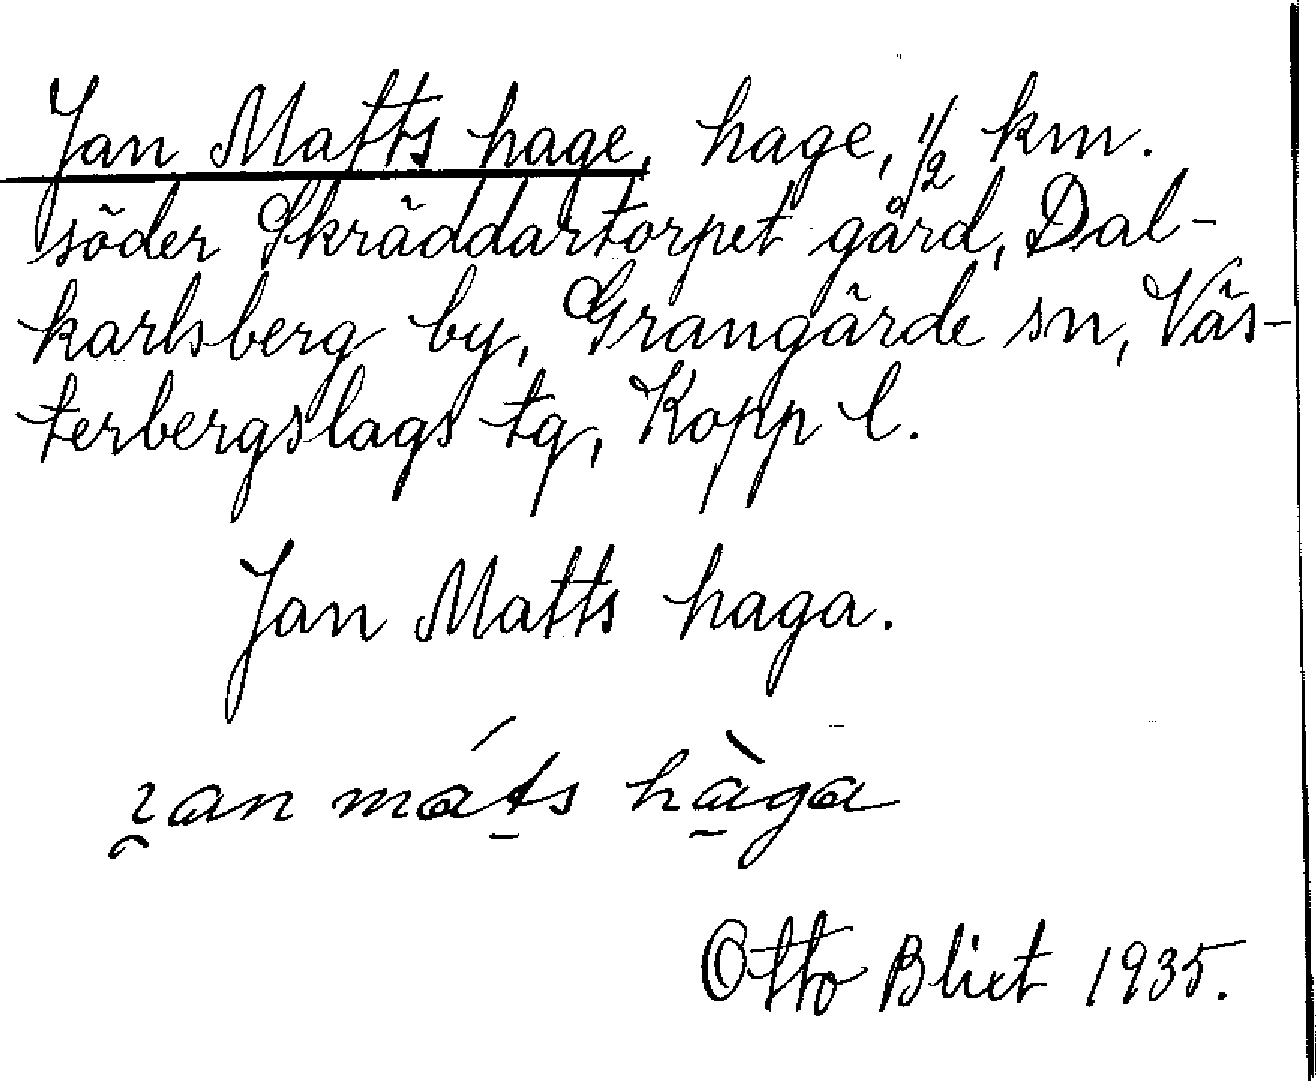 Jan Matts hage, hage, 1/2 km.
söder Skräddartorpet gård, Dal-
karlsberg by, Grangärde sn, Väs-
terbergslags tg, Kopp l.
Jan Matts haga.
ı̯an máts hàga
Otto Blixt 1935.